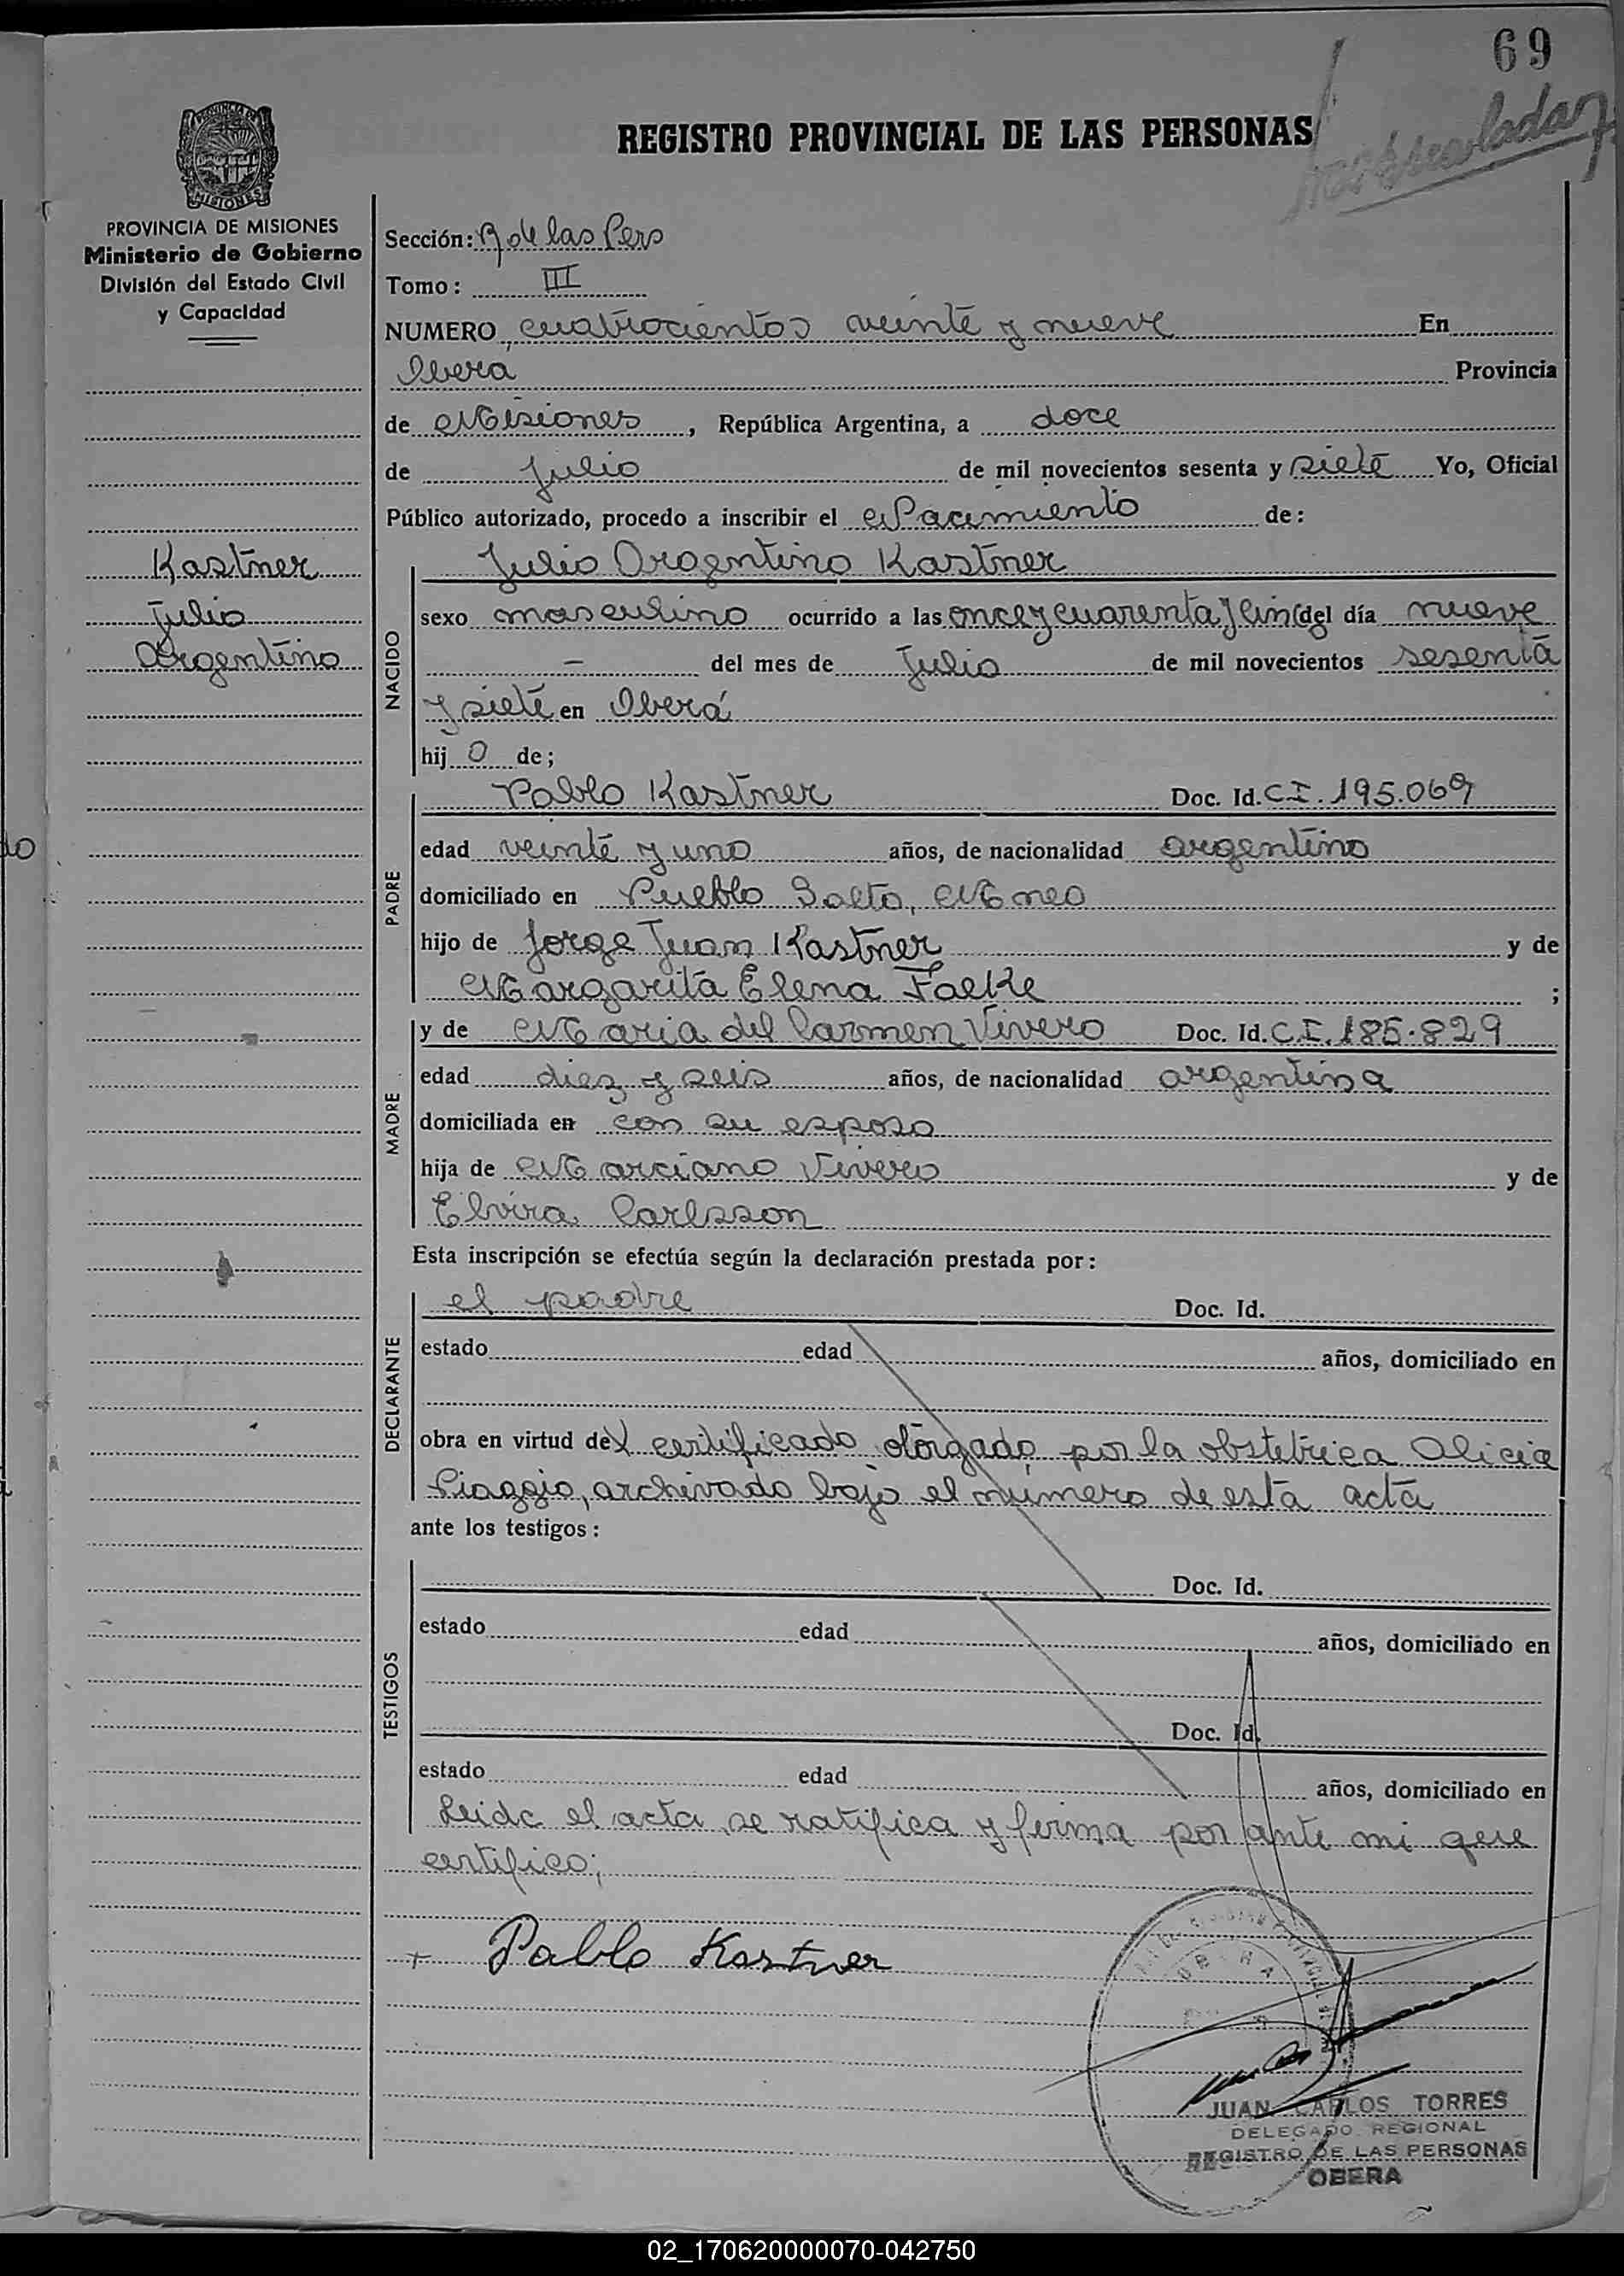 69
REGISTRO PROVINCIAL DE LAS PERSONAS
PROVINCIA DE MISIONES
Ministerio de Gobierno
División del Estado Civil
y Capacidad
Sección: R de las Pers
Tomo: III
NUMERO cuatrocientos veinte y nueve En
Obera Provincia
de Misiones, República Argentina, a doce
de Julio de mil novecientos sesenta y siete Yo, Oficial
Público autorizado, procedo a inscribir el Nacimiento de:
Kastner
Julio
Argentino
NACIDO
Julio Argentino Kastner
sexo masculino ocurrido a las once y cuarenta y cin(del día nueve
— del mes de Julio de mil novecientos sesenta
y siete en Oberá
hijo de;
PADRE
Pablo Kastner Doc. Id. C.I. 195.069
edad veinte y uno años, de nacionalidad argentino
domiciliado en Pueblo Salto, Mnes
hijo de Jorge Juan Kastner y de
Margarita Elena Falke ;
MADRE
y de Maria del Carmen Vivero Doc. Id. C.I. 185.829
edad diez y seis años, de nacionalidad argentina
domiciliada en con su esposo
hija de Marciano Vivero y de
Elvira Carlsson
Esta inscripción se efectúa según la declaración prestada por:
DECLARANTE
el padre Doc. Id.
estado edad años, domiciliado en
obra en virtud del certificado otorgado por la obstetrica Alicia
Piaggio, archivado bajo el número de esta acta
ante los testigos:
TESTIGOS
Doc. Id.
estado edad años, domiciliado en
Doc. Id.
estado edad años, domiciliado en
Leida el acta se ratifica y firma por ante mi que
certifico;
+ Pablo Kastner
JUAN CARLOS TORRES
DELEGADO REGIONAL
REGISTRO DE LAS PERSONAS
OBERA
02_170620000070-042750